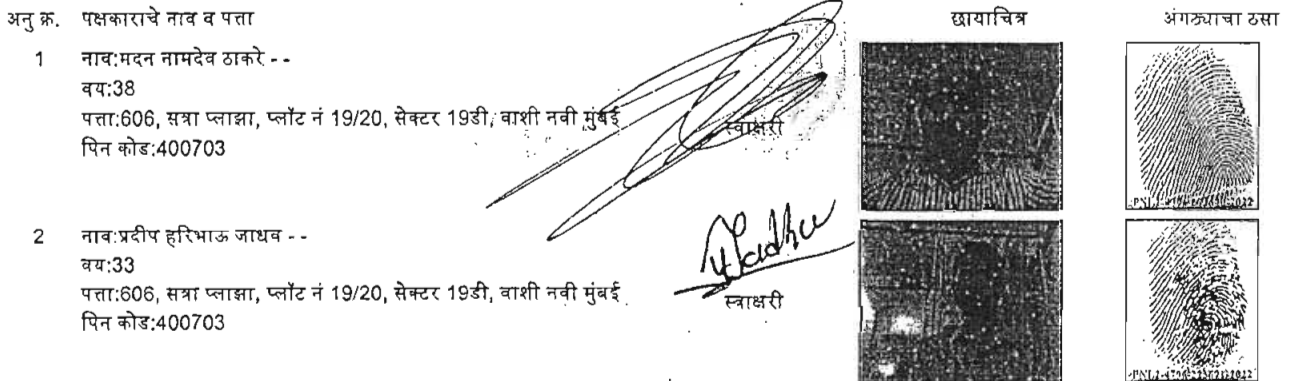 अनु क्र. पक्षकाराचे नाव व पत्ता छायाचित्र अंगठ्याचा ठसा
1 नाव:मदन नामदेव ठाकरे - -
वय:38
पत्ता:606, सत्रा प्लाझा, प्लॉट नं 19/20, सेक्टर 19डी, वाशी नवी मुंबई
पिन कोड:400703
स्वाक्षरी
2 नाव:प्रदीप हरिभाऊ जाधव - -
वय:33
पत्ता:606, सत्रा प्लाझा, प्लॉट नं 19/20, सेक्टर 19डी, वाशी नवी मुंबई
पिन कोड:400703
स्वाक्षरी